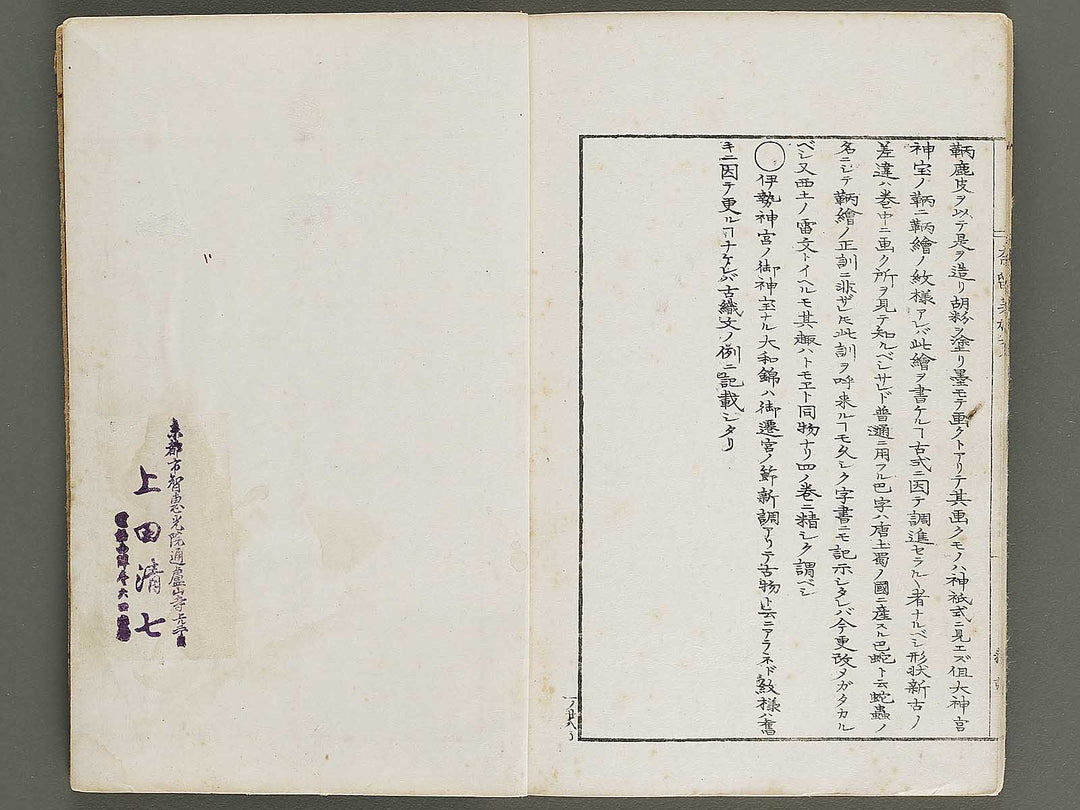 鞆鹿皮ヲ以テ是ヲ造リ胡粉ヲ塗リ墨モテ画クトアリテ其画クモノハ神祇式ニ見エズ但大神宮
神宝ノ鞆ニ鞆繪ノ紋様アレバ此繪ヲ書ケルヿ古式ニ因テ調進セラルヽ者ナルベシ形状新古ノ
差違ハ巻中ニ画ク所ヲ見テ知ルベシサレド普通ニ用フル巴字ハ唐土蜀ノ國ニ産スル巴蛇ト云蛇蟲ノ
名ニシテ鞆繪ノ正訓ニ非ザレ𪜈此訓ヲ呼来ルヿモ久シク字書ニモ記示シタレバ今更改メガタカル
ベシ又西土ノ雷文トイヘルモ其趣ハトモヱト同物ナリ四ノ巻ニ精シク謂ベシ
◯伊勢神宮ノ御神宝ナル大和錦ハ御遷宮ノ節新調アリテ古物ト云ニアラネド紋様ハ舊
キニ因テ更ルヿナケレバ古織文ノ例ニ記載シタリ
京都市智恵光院通盧山寺上
上田清七